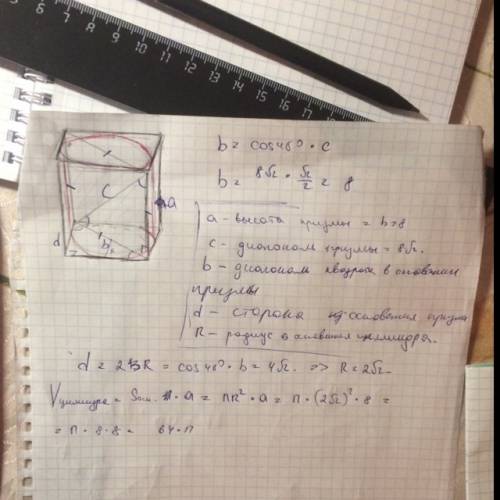 5 6 7 8 9 10 11 12 13 14 15 16 17 18
b = cos 40° · c
b = 8√2 · √2/2 = 8
a - высота призмы = b = 8
c - диагональ призмы = 8√2.
b - диагональ квадрата в основании
призмы
d - сторона основания призмы
R - радиус основания цилиндра.
d = 2R = cos 40° · b = 4√2. => R = 2√2
V цилиндра = Sосн. · a = πR² · a = π · (2√2)² · 8 =
= π · 8 · 8 = 64 · π
c
a
b
d